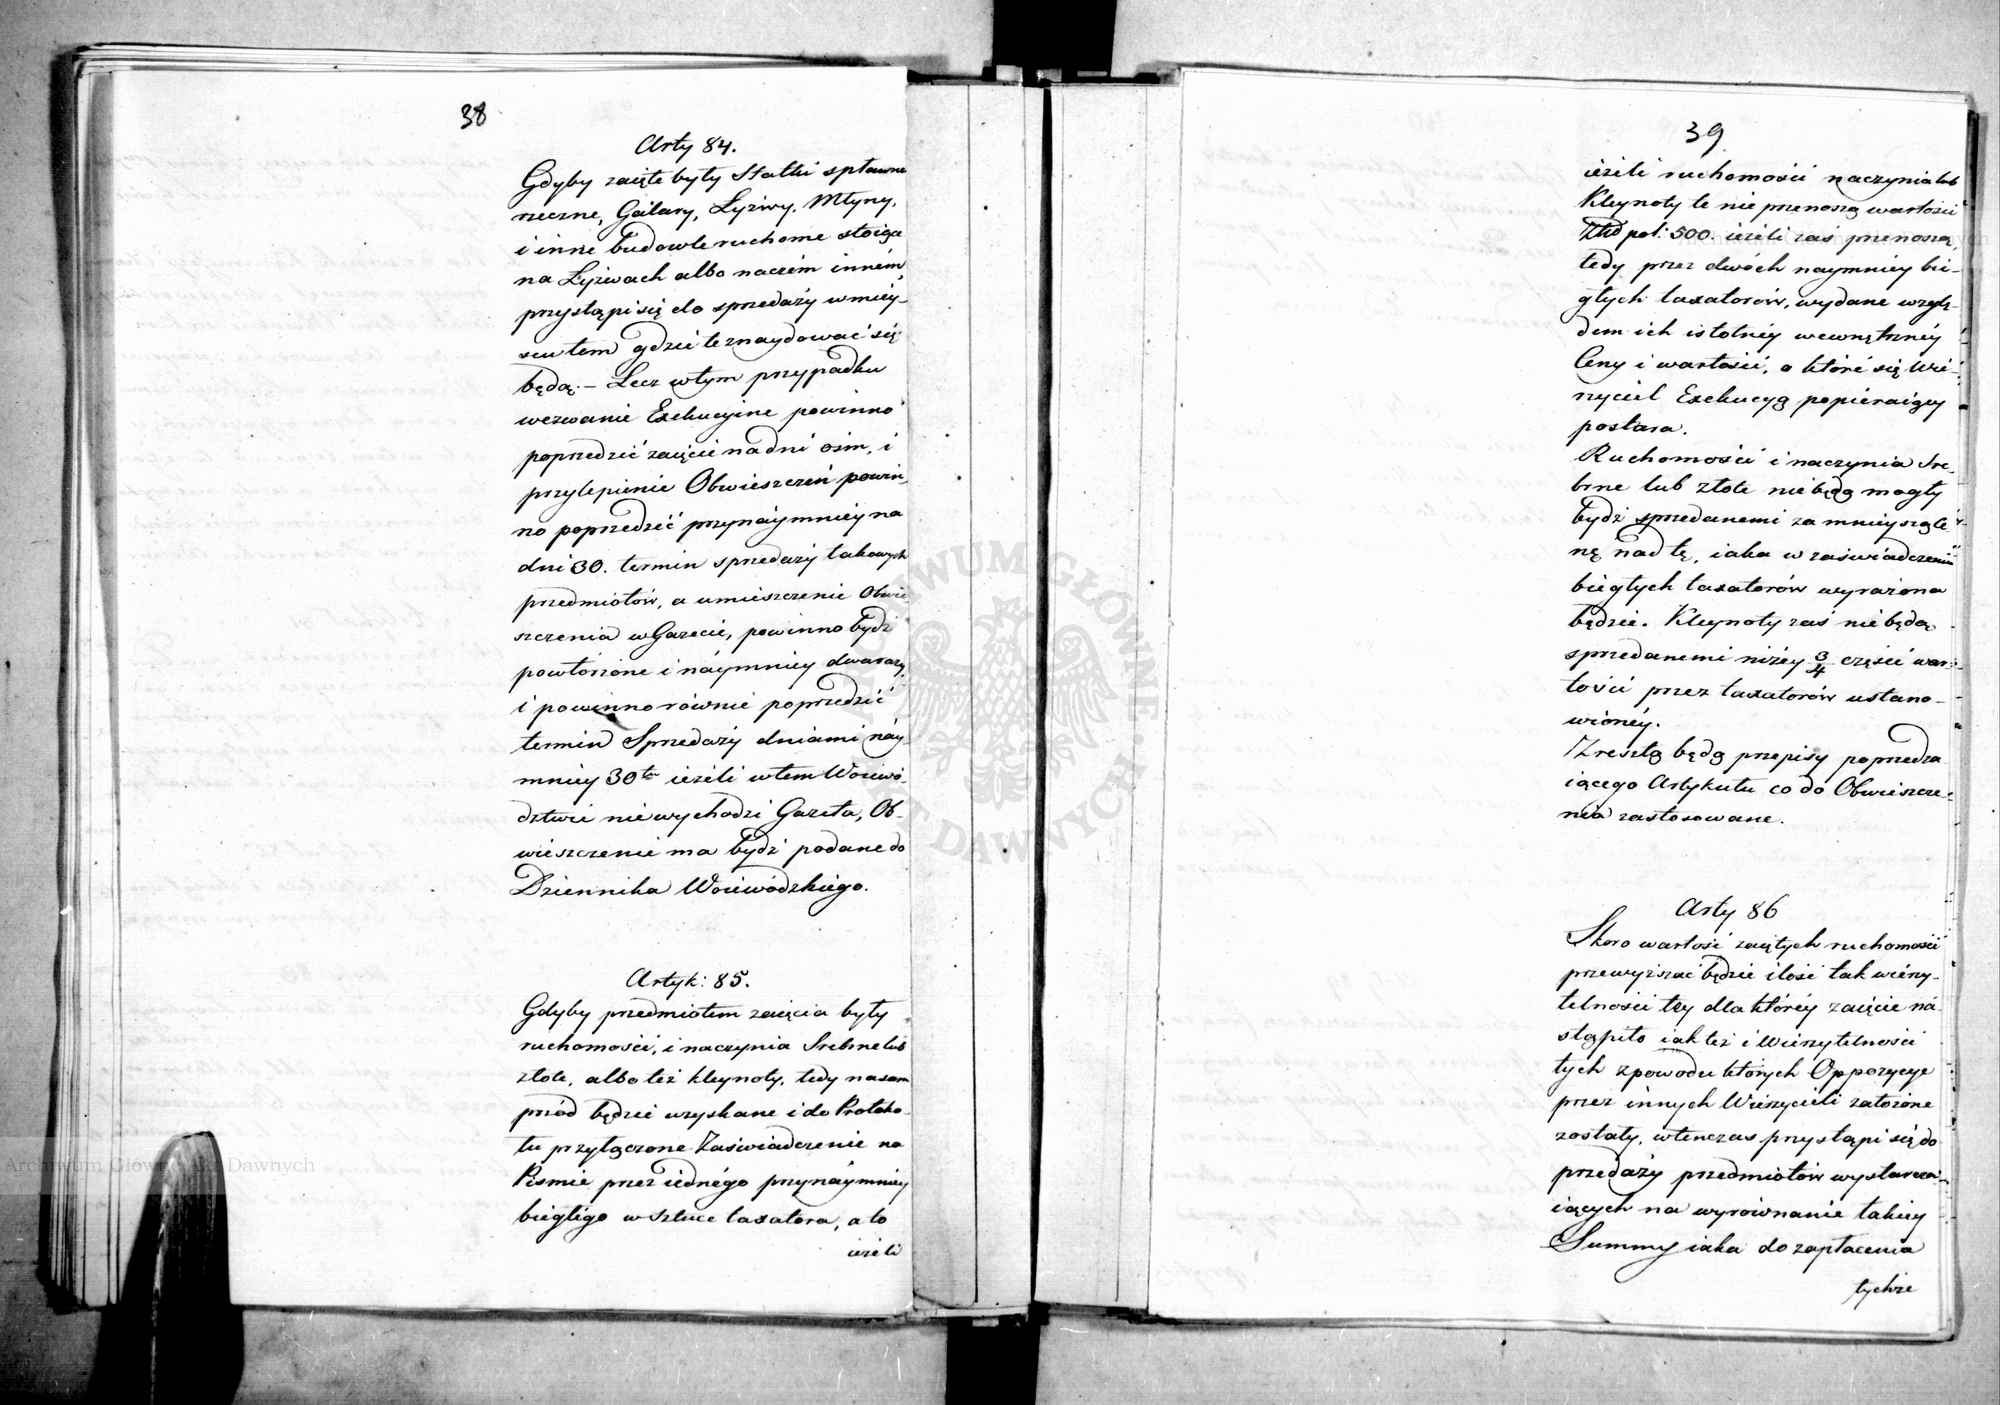 38
Arty 84.
Gdyby zaięte były Statki spławne
rzeczne, Galary, Łyżwy, Młyny,
i inne budowle ruchome stoiące
na Łyżwach albo na czém inném,
przystąpi się do sprzedaży w miéy-
scu tem gdzie te znaydować się
będą. – Lecz w tym przypadku
wezwanie Exekucyine powinno
poprzedzić zaięcie na dni ośm, i
przylepienie Obwieszczeń powin-
no poprzedzić przynáymniéy na
dni 30. termin sprzedaży takowych
przedmiotów, a umieszczenie Obwie-
szczenia w Gazecie, powinno bydź
powtórzone i náymniéy dwa razy,
i powinno równie poprzedzić
termin Sprzedaży dniami náy-
mniéy 30tu ieżeli w tem Woiewó-
dztwie nie wychodzi Gazeta, Ob-
wieszczenie ma bydź podane do
Dziennika Woiewódzkiego.
Artyk: 85.
Gdyby przedmiotem zaięcia były
ruchomości, i naczynia Srebrne lub
złote, albo też kleynoty, tedy na sam
przód będzie uzyskane i do Protoko-
łu przyłączone Zaświadczenie na
Piśmie przez iednégo przynáymniéy
biegłégo w sztuce taxatora, a to
ieżeli
39
ieżeli ruchomości naczynia lub
Kleynoty te nie przenoszą wartości
Złł pol: 500. ieżeli zaś przenoszą,
tedy przez dwóch naymniéy bie-
głych taxatorów, wydane wzglę-
dem ich istotnéy wewnętrznéy
Ceny i wartości, o które się Wie-
rzyciel Exekucyą popieraiący
postara.
Ruchomości i naczynia Sre-
brne lub złote nie będą mogły
bydź sprzedanemi za mnieyszą ce-
nę nad tę, iaka w zaświadczeniu
biegłych taxatorów wyrażona
będzie. Kleynoty zaś nie będą
sprzedanemi niżéy 3/4 części war-
tości przez taxatorów ustano-
wionéy.
Zresztą będą przepisy poprzedza-
iącego Artykułu co do Obwieszcze-
nia zastosowane.
Arty 86
Skoro wartość zaiętych ruchomości
przewyższać będzie ilość tak wiérzy-
telności téy dla któréy zaięcie ná-
stąpiło iak też i Wiérzytelności
tych z powodu których Oppozycye
przez innych Wierzycieli założone
zostały, wtenczas przystąpi się do
przedaży przedmiotów wystarcza-
iących na wyrównanie takiéy
Summy iaka do zapłacenia
tychże
ARCHIWUM GŁÓWNE AKT DAWNYCH
Archiwum Główne Akt Dawnych